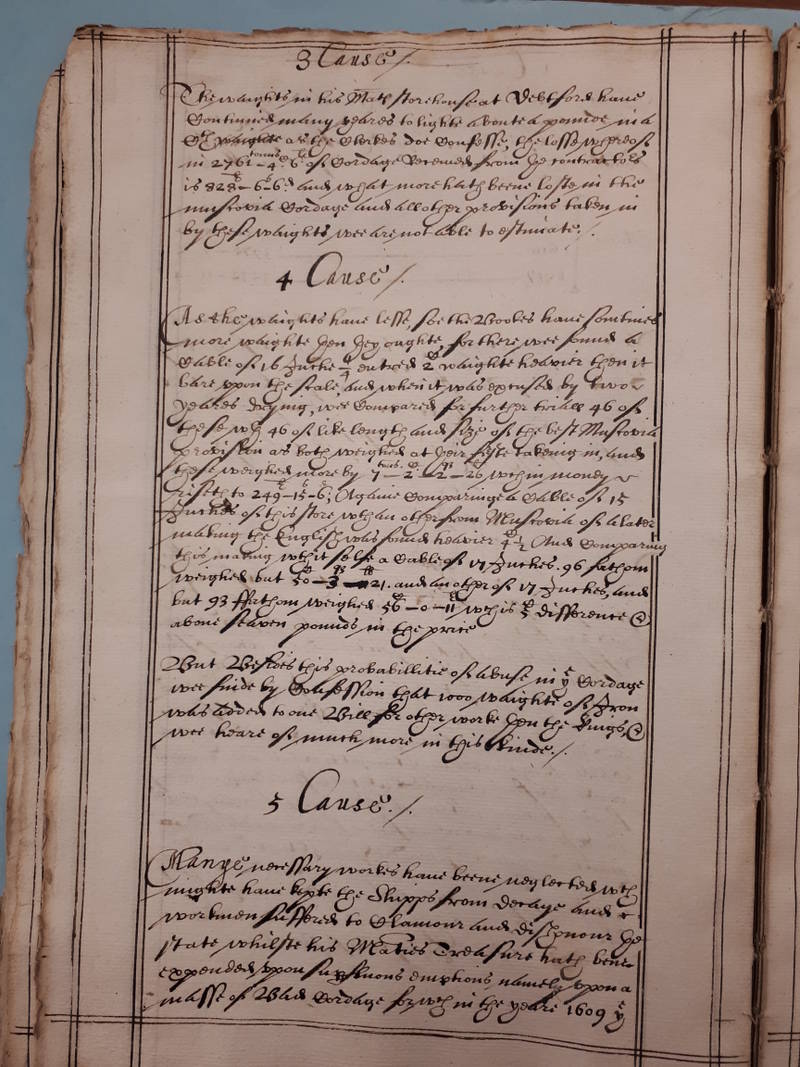 3 Cause /.
The waights in his Maties storehouse at Debtford have
Continued many yeares to lighte aboute a pounde in a
Cth waighte as the Clarkes doe Confesse, the losse whereof
in 2761 tonns – 4 C – 6 li of Cordage Receaved from ye contractors
is 828 li – 6 s – 6 d and what more hath beene loste in the
muscovia Cordage and all other provisions taken in
by these waights wee are not able to estimate. /.
4 Cause /.
As the waights have lesse, soe the Bookes have somtimes
more waighte then they oughte, for there wee found a
Cable of 16 Inche 1/4 entred 2 C waighte heavier then it
bare upon the scale, and when it was expensed by two
yeares drying, wee Compared for further triall 46 of
these wth 46 of like length and size of the best Muscovia
provision as both weighed at their firste takeing in, and
these weighed more by 7 tonns – 2 C – 2 qrs – 26 li wch in money
riseth to 249 li – 15 s – 6 d; Againe Comparinge a Cable of 15
Inches of this store wth an other from Muscovia of a later
making the English was found heavier 4 C 1/2 And Comparing
this making wth it selfe a Cable of 17 Inches. 96 fathom
weighed but 50 C – 3 qrs – 21 li. and an other of 17 Inches, and
but 93 ffathom weighed 56 C – 0 – 11 li wch is difference
above seaven pounds in the price
But Besides this probabillitie of abuse in ye Cordage
wee finde by Confession that 1000 waighte of Iron
was added to one Bill for other worke then the Kings,
wee heare of much more in this kinde. /.
5 Cause. /.
Manye necessary workes have beene neglected wch
mighte have kepte the Shipps from decaye and
workmen suffered to Clamour and dishonour ye
state whilste his Maties Treasure hath bene
expended upon superfluous emptions namely upon a
masse of Bad Cordage for wch in the yeare 1609 ye